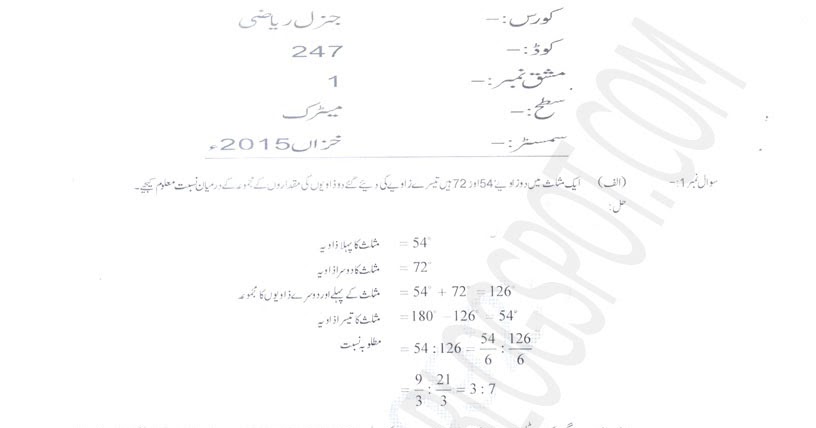 کورس:- جنرل ریاضی
کوڈ:- 247
مشق نمبر:- 1
سطح:- میٹرک
سمسٹر:- خزاں 2015ء
سوال نمبر 1:- (الف) ایک مثلث میں دو زاویے 54 اور 72 ہیں تیسرے زاویے کی دیئے گئے دو ذاویوں کی مقداروں کے مجموعہ کے درمیان نسبت معلوم کیجیے۔
حل:
مثلث کا پہلا ذاویہ = 54°
مثلث کا دوسرا ذاویہ = 72°
مثلث کے پہلے اور دوسرے ذاویوں کا مجموعہ = 54° + 72° = 126°
مثلث کا تیسرا ذاویہ = 180° − 126° = 54°
مطلوبہ نسبت = 54 : 126 = 54/6 : 126/6
= 9/3 : 21/3 = 3 : 7
BLOGSPOT.COM